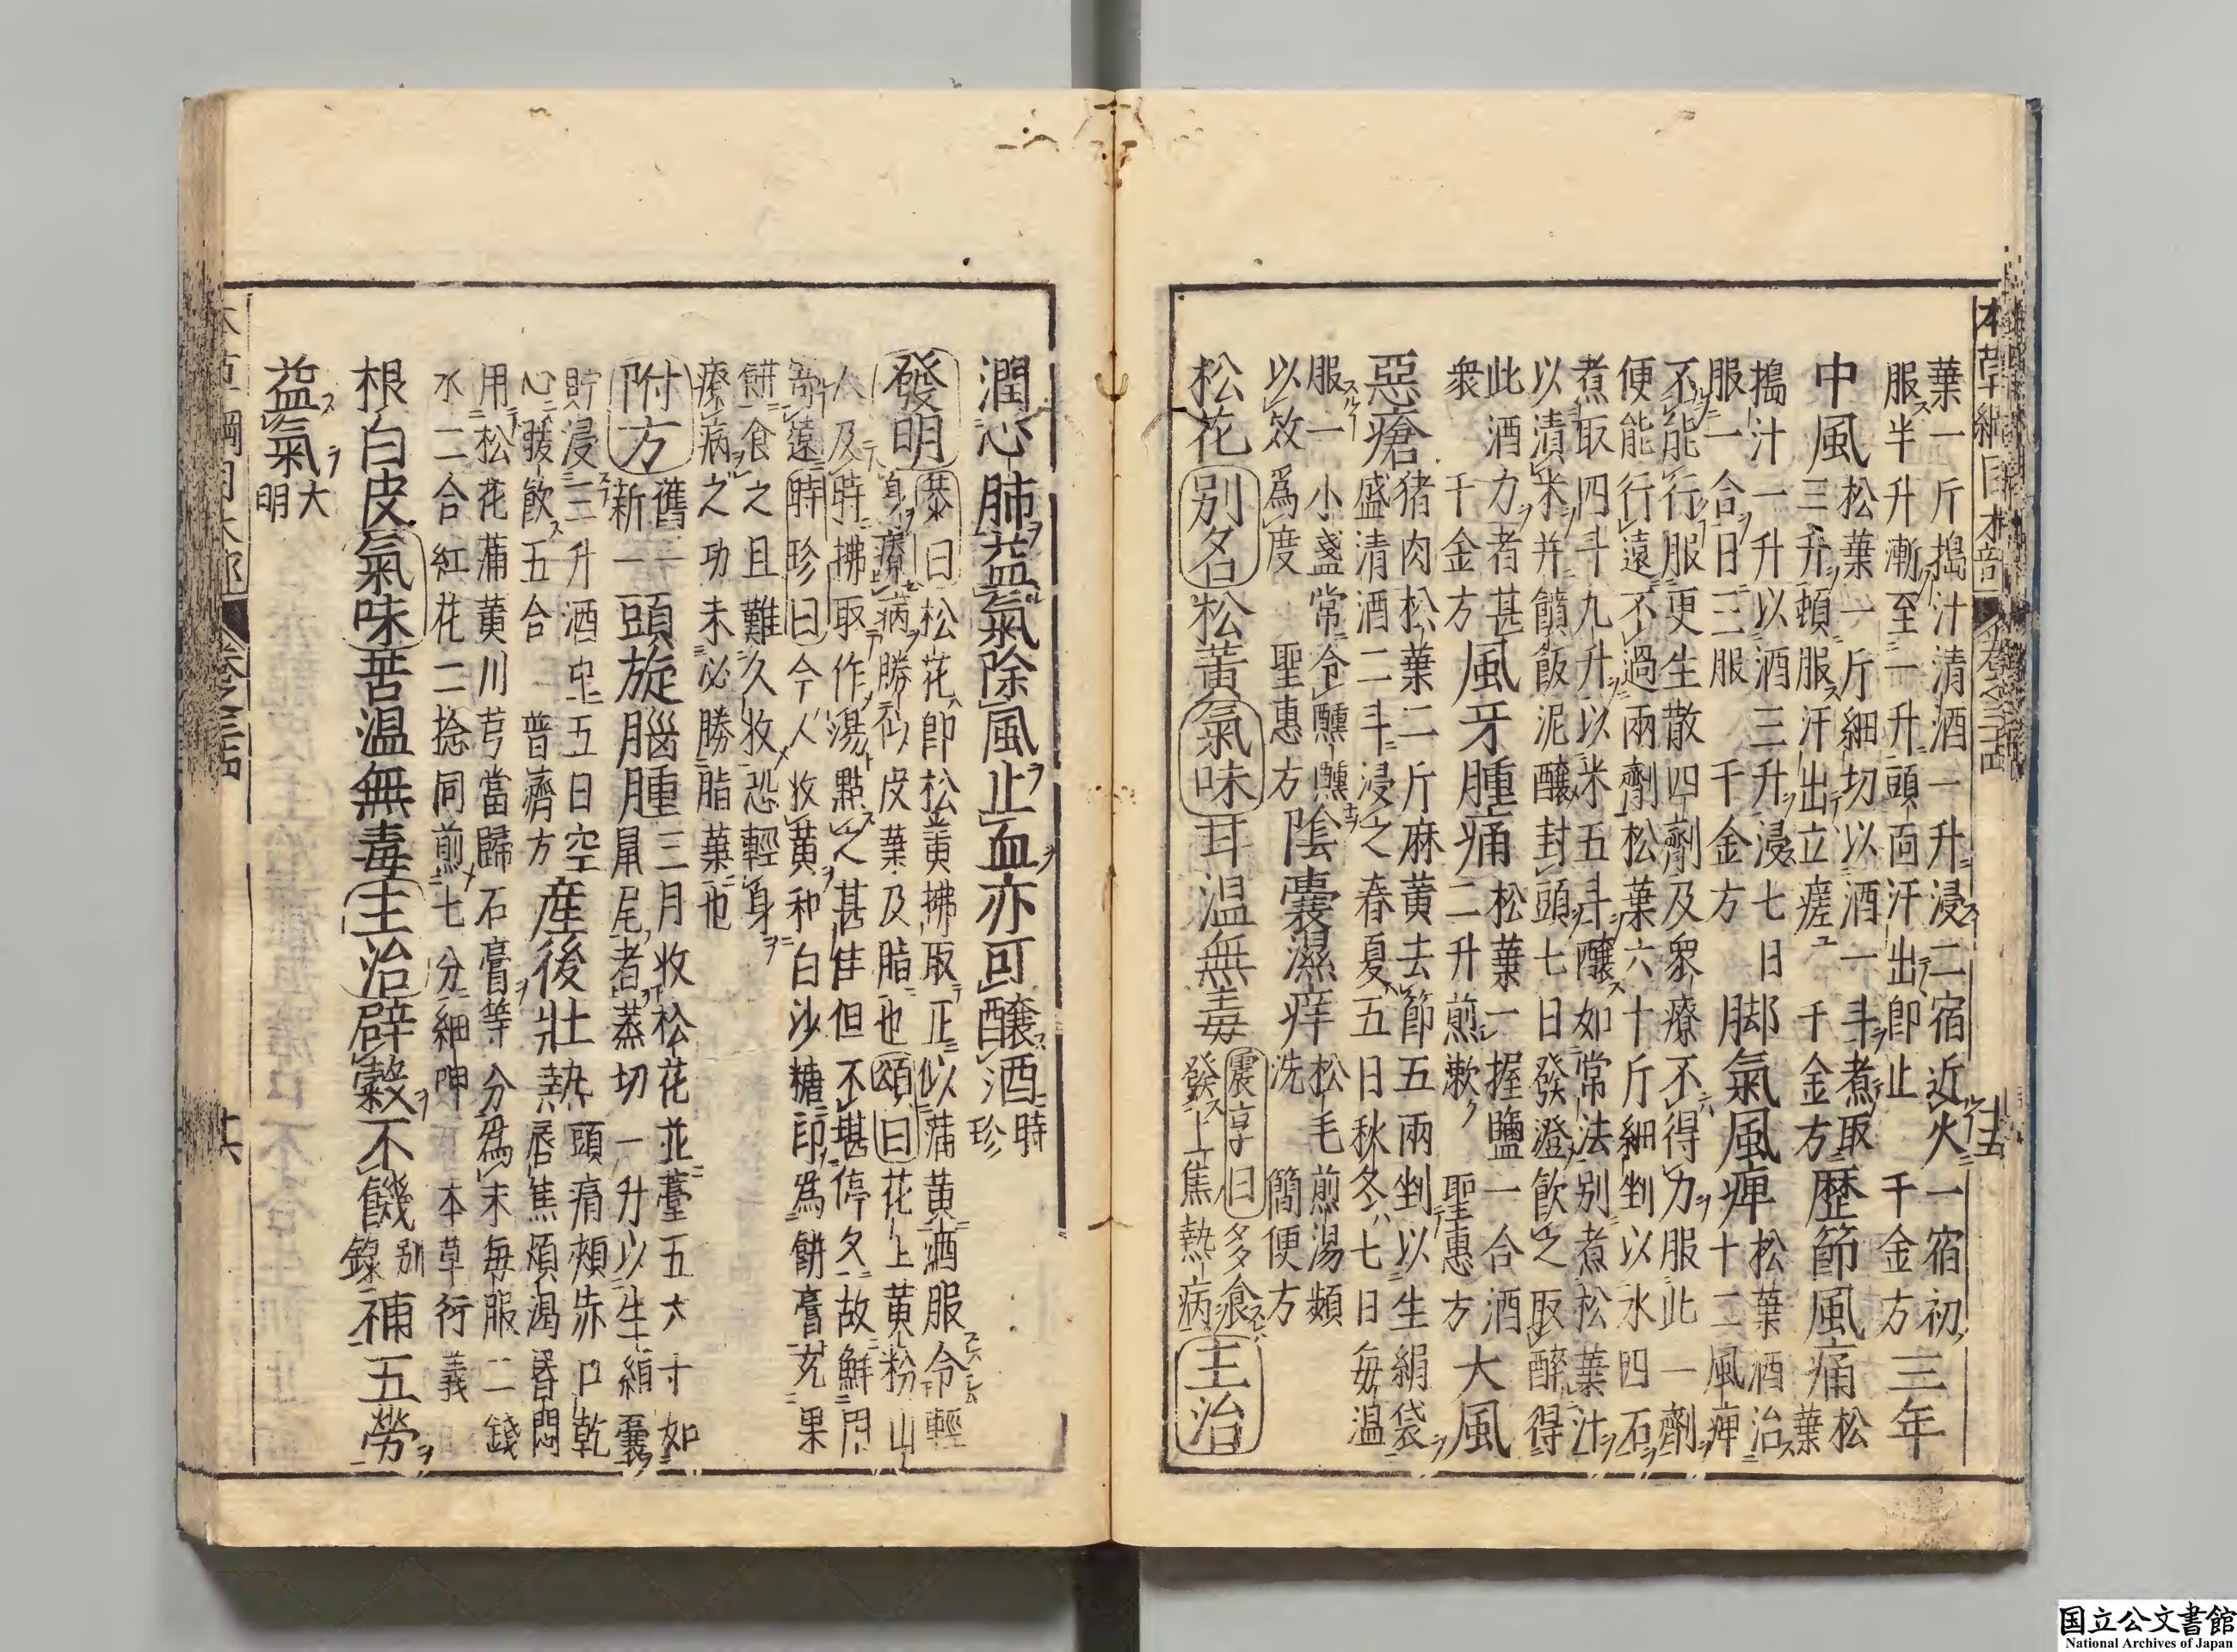 本草綱目木部 卷之三十四 十五
葉一斤搗汁清酒一升浸二宿近火一宿初
服半升漸至一升頭面汗出即止 千金方
三年
中風
松葉一斤細切以酒一斗煮取
三升頓服汗出立瘥 千金方
歷節風痛
松
葉
搗汁一升以酒三升浸七日
服一合日三服 千金方
脚氣風痺
松葉酒治
十二風痺
不能行服更生散四劑及衆療不得力服此一劑
便能行遠不過兩劑松葉六十斤細剉以水四石
煮取四斗九升以米五斗釀如常法别煮松葉汁
以漬米并饙飯泥釀封頭七日發澄飲之取醉得
此酒力者甚
衆 千金方
風牙腫痛
松葉一握鹽一合酒
二升煎漱 聖惠方
大風
惡瘡
猪肉松葉二斤麻黄去節五兩剉以生絹袋
盛清酒二斗浸之春夏五日秋冬七日毎温
服一小盞常令醺醺
以效爲度 聖惠方
陰囊濕痒
松毛煎湯頻
洗 簡便方
松花 别名 松黄 氣味 甘温無毒
震亨曰多食
發上焦熱病
主治
潤心肺益氣除風止血亦可釀酒
時
珍
發明
恭曰松花即松黄拂取正似蒲黄酒服令輕
身療病勝似皮葉及脂也 頌曰花上黄粉山
人及時拂取作湯點之甚佳但不堪停久故鮮用
寄遠 時珍曰今人收黄和白沙糖印爲餅膏充果
餅食之且難久收恐輕身
療病之功未必勝脂葉也
附方
舊一
新一
頭旋腦腫
三月收松花並薹五六寸如
鼠尾者蒸切一升以生絹囊
貯浸三升酒中五日空
心暖飲五合 普濟方
産後壯熱
頭痛頰赤口乾
唇焦煩渴昏悶
用松花蒲黄川芎當歸石膏等分爲末毎服二錢
水二合紅花二捻同煎七分細呷 本草衍義
根白皮 氣味 苦温無毒 主治 辟穀不饑
别
錄
補五勞
益氣
大
明
本草綱目木部 卷之三十四 十六
国立公文書館
National Archives of Japan